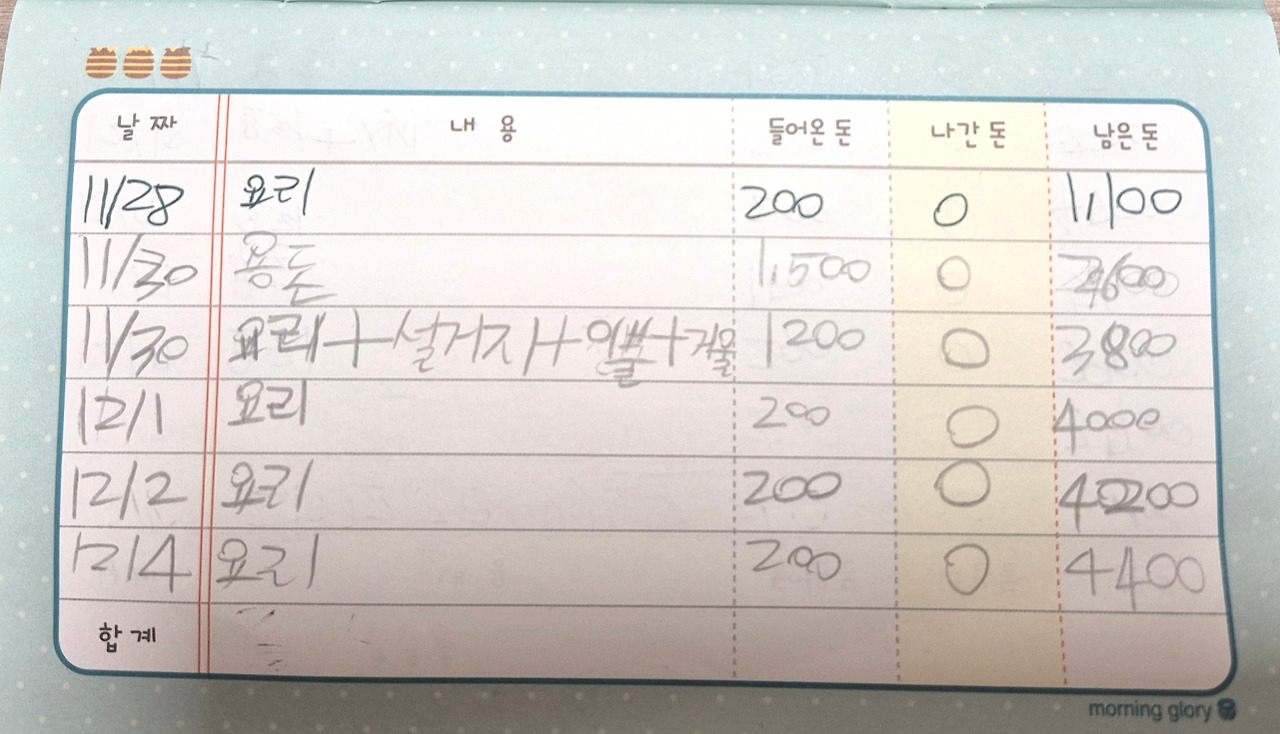 날짜 내용 들어온 돈 나간 돈 남은 돈
11/28 요리 200 0 1,100
11/30 용돈 1,500 0 2600
11/30 요리+설거지+이불+거울 1200 0 3800
12/1 요리 200 0 4000
12/2 요리 200 0 40200
12/4 요리 200 0 4400
합계
morning glory